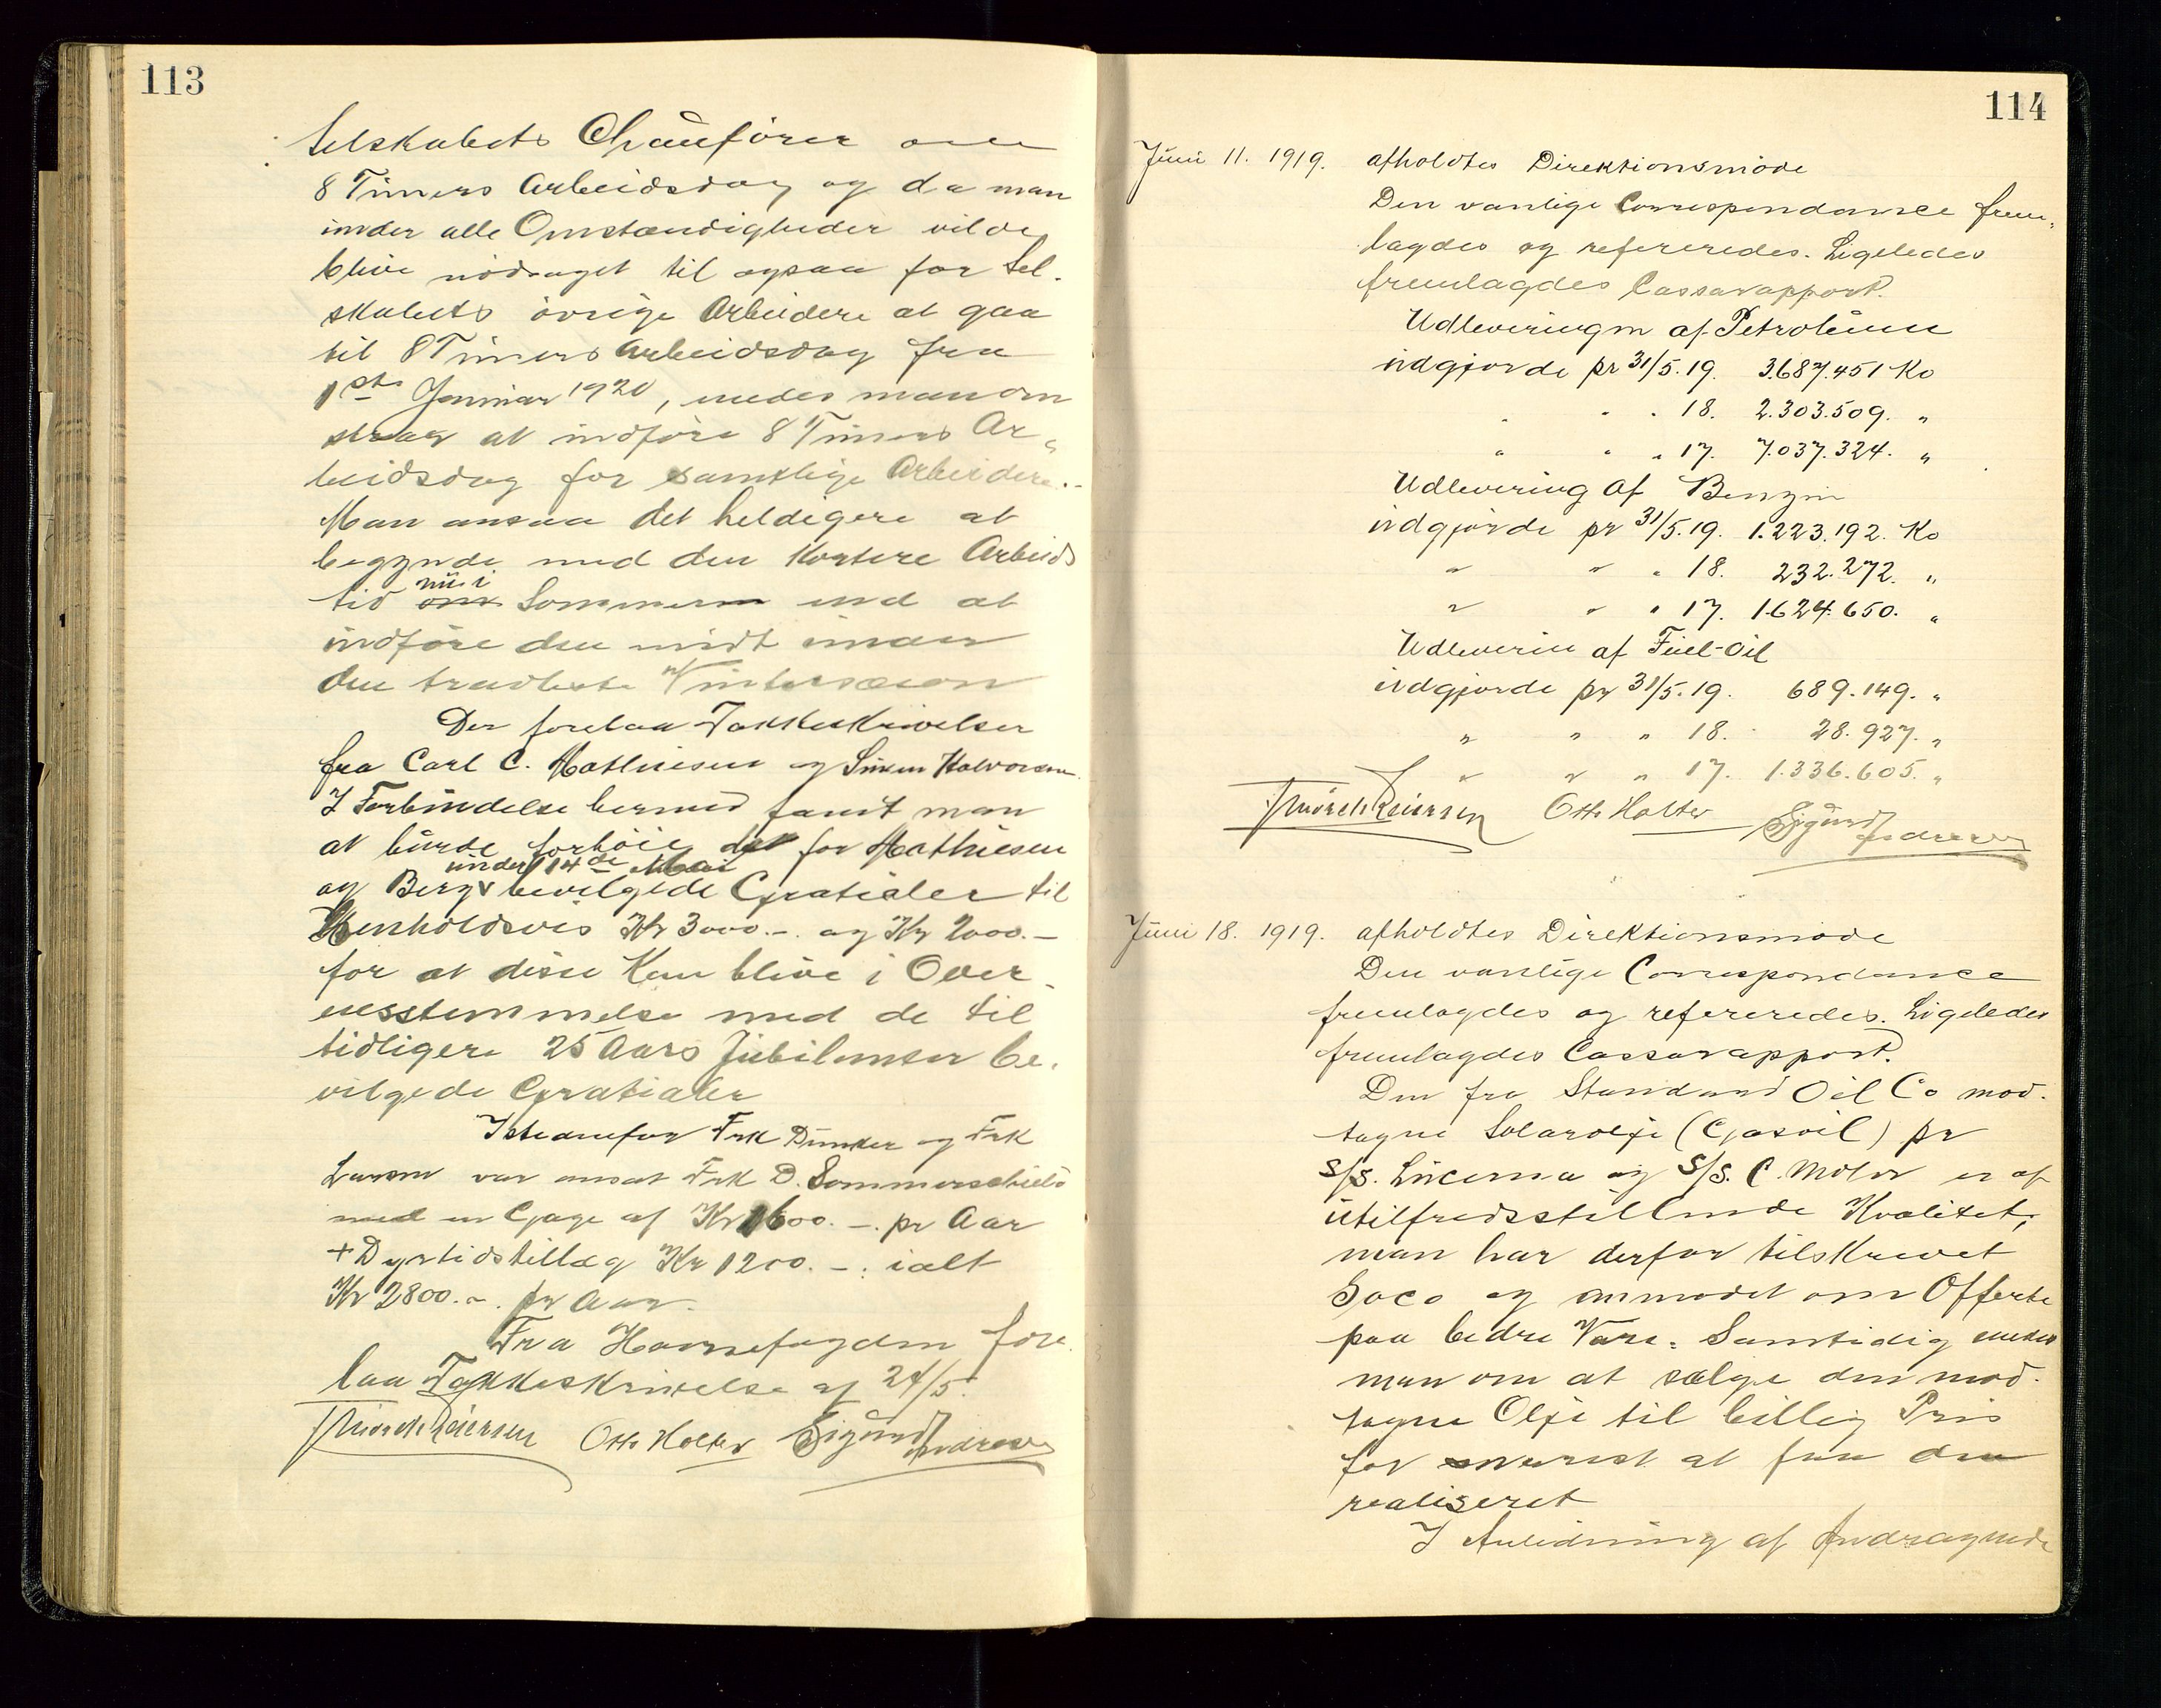 113
Selskabets Chauförer om
8 Timers Arbeidsdag og da man
under alle Omstændigheder vilde
blive nödsaget til ogsaa for Sel-
skabets övrige Arbeidere at gaa
til 8 Timers Arbeidsdag fra
1ste Januar 1920, enedes man om
strax at indföre 8 Timers Ar-
beidsdag for samtlige Arbeidere.-
Man ansaa det heldigere at
begynde med den Kortere Arbeids
tid nu i Sommer end at
indföre den midt under
den travleste Vintersæson
Der forelaa Takkeskrivelser
fra Carl C. Mathiesen og Simen Halvorsen.
I Forbindelse hermed fandt man
at burde forhöie de for Mathiesen
og Berg under 14de Mai bevilgede Gratialer til
Henholdsvis Kr 3000.-. og Kr 2000.-
for at disse Kan blive i Over-
enesstemmelse med de til
tidligere 25 Aars Jubilanter be-
vilgede Gratialer
Istedenfor Frk Dunker og Frk
Larsen var ansat Frk D. Sommerschield
med en Gage af Kr 1600.-. pr Aar
+ Dyrtidstillæg Kr 1200.-: ialt
Kr 2800.-. pr Aar.
Fra Havnefogden fore
laa Takkeskrivelse af 24/5.
Otto Holter Sigurd Andresen
114
Juni 11. 1919. afholdtes Direktionsmöde
Den vanlige Correspondance frem-
lagdes og refereredes. Ligeledes
fremlagdes Cassarapport.
Udleveringen af Petroleum
udgjorde pr 31/5.19. 3.687.451 Ko
" " " 18. 2.303.509. "
" " " 17. 7.037.324. "
Udlevering af Benzin
udgjorde pr 31/5.19. 1.223.192. Ko
" " " 18. 232.272. "
" " " 17. 1.624.650. "
Udleverin af Fuel-Oil
udgjorde pr 31/5.19. 689.149. "
" " " 18. 28.927. "
" " " 17. 1.336.605. "
Otto Holter Sigurd Andresen
Juni 18. 1919. afholdtes Direktionsmöde
Den vanlige Correspondance
fremlagdes og refereredes. Ligeledes
fremlagdes Cassarapport.
Den fra Standard Oil Co mod-
tagne Solarolje (Gasoil) pr
S/S. Lucerna og S/S. C. Motor er af
utilfredsstillende Kvalitet,
man har derfor tilskrevet
Soco og anmodet om Offerte
paa bedre Vare. Samtidig enedes
man om at sælge den mod-
tagne Olje til billig Pris
for snarest at faa den
realiseret
I Anledning af Andragende